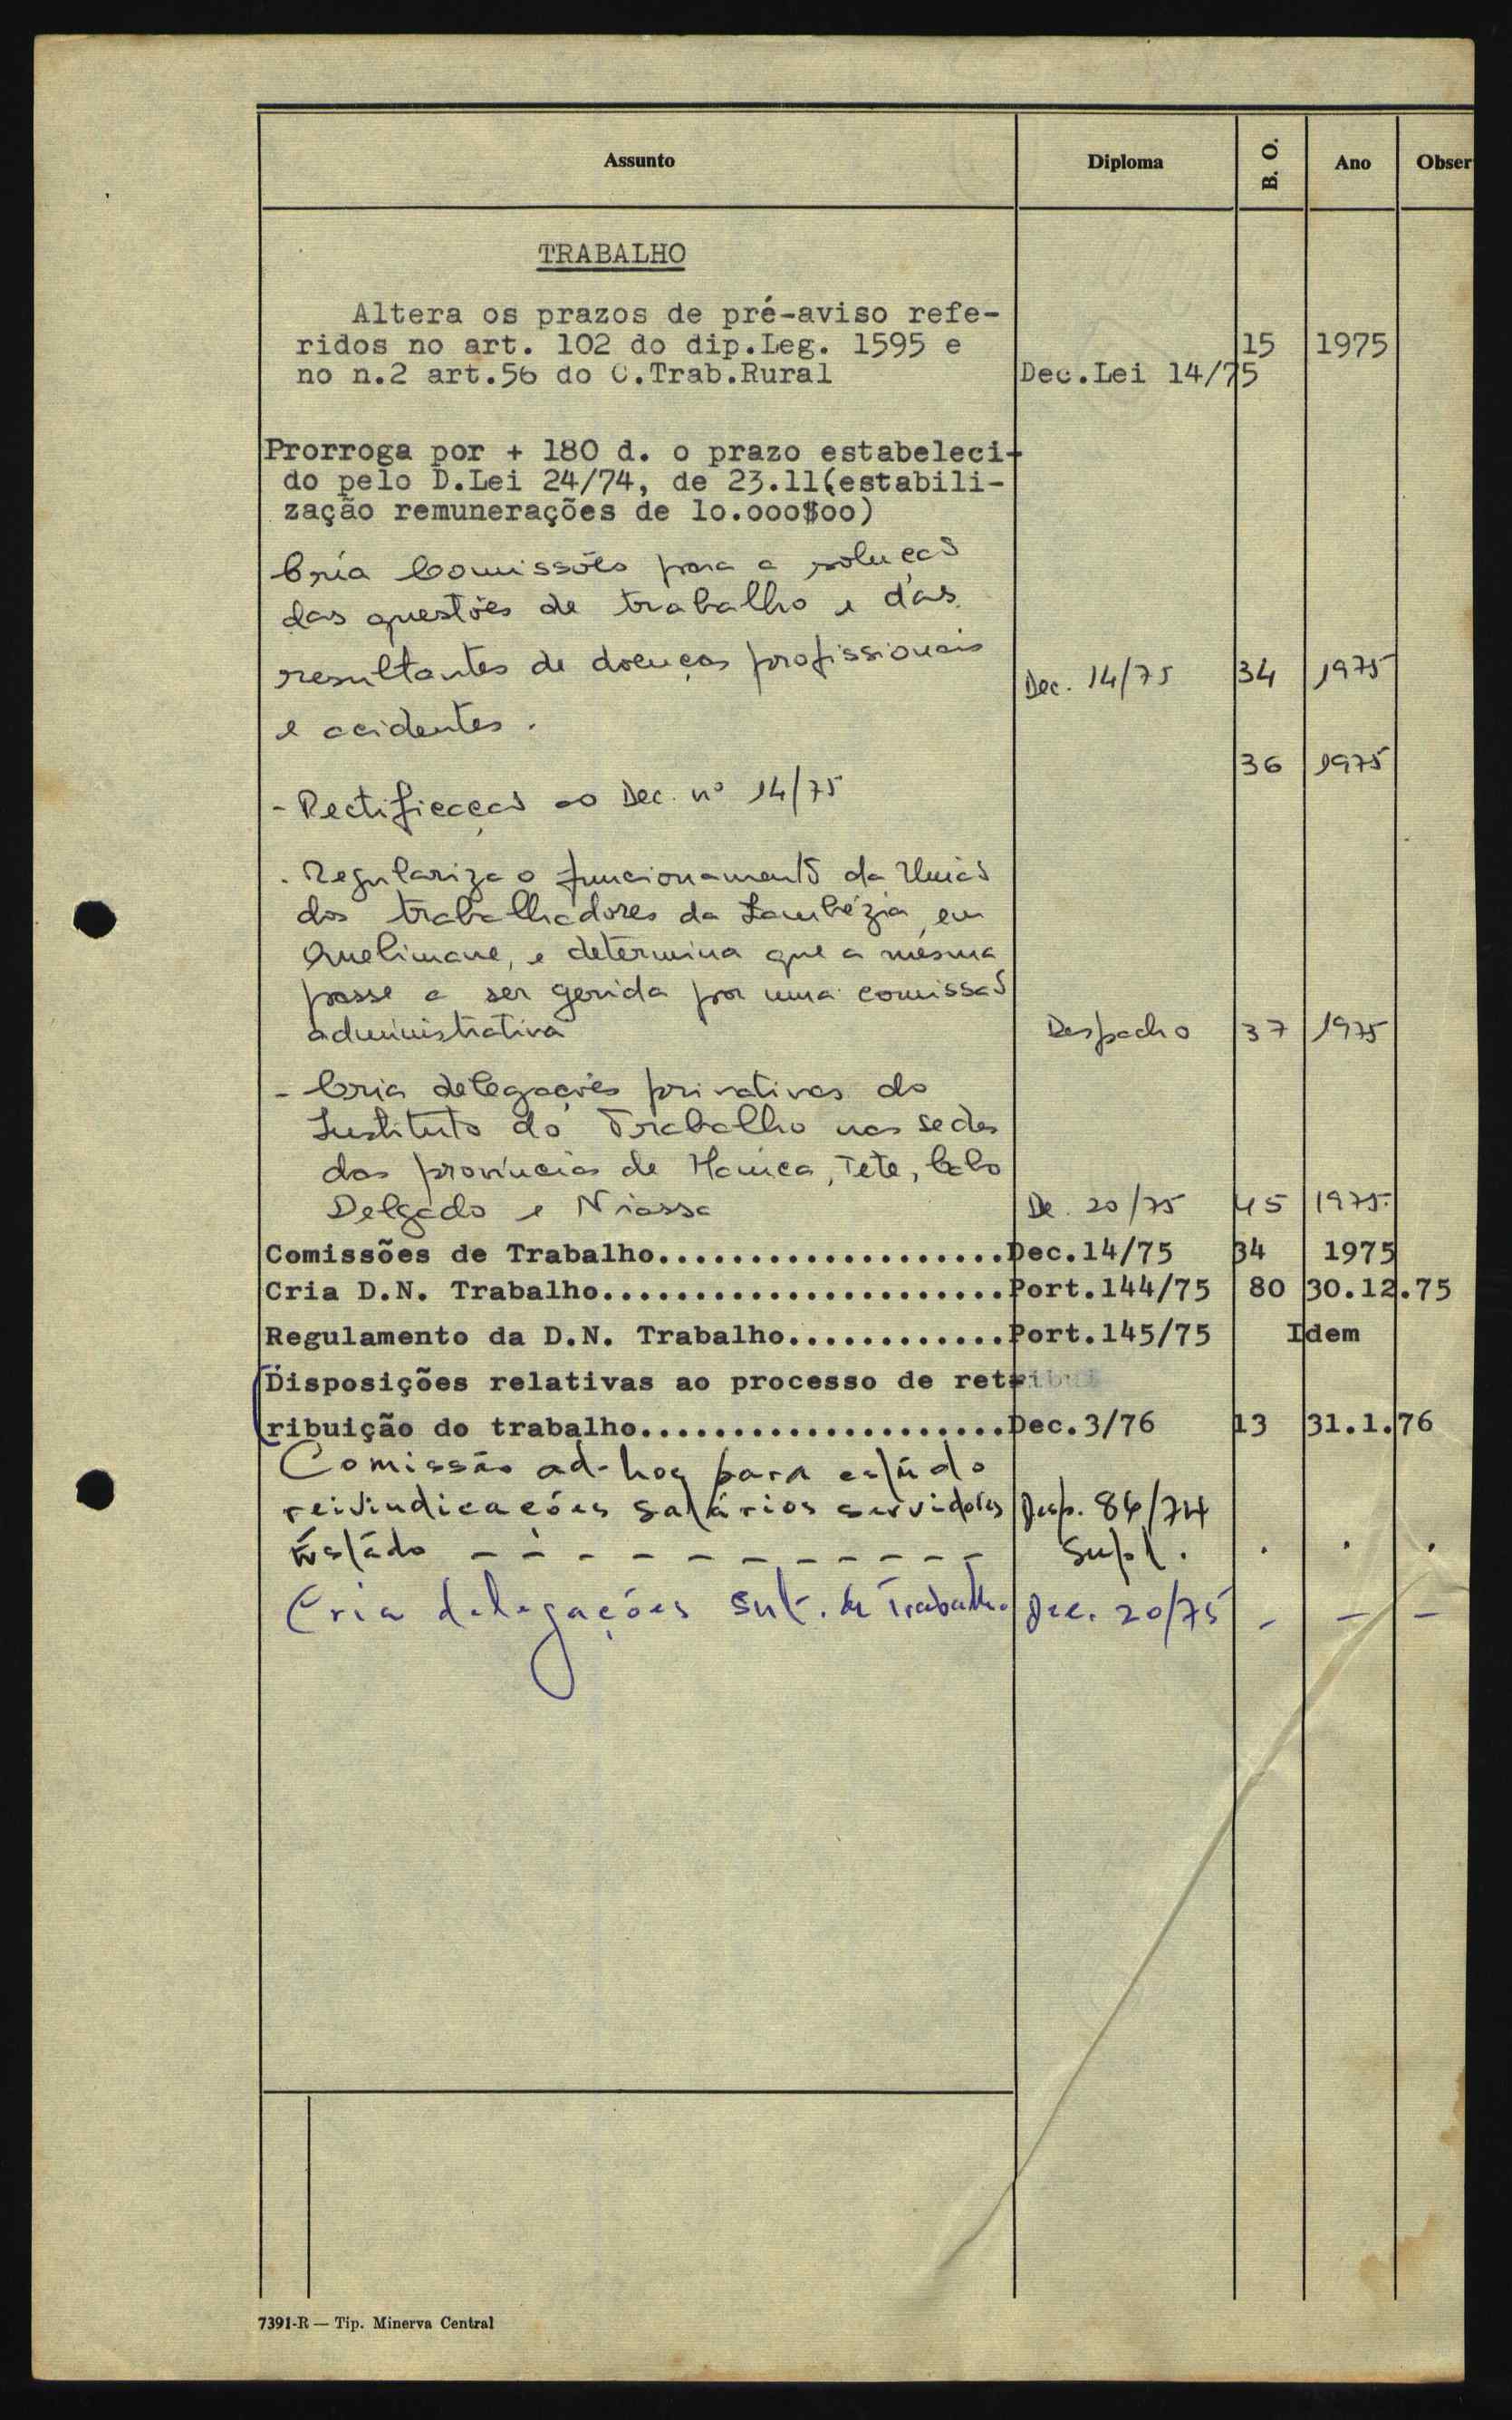 Assunto Diploma B. O. Ano Obser
TRABALHO
Altera os prazos de pré-aviso refe-
ridos no art. 102 do dip.Leg. 1595 e 15 1975
no n.2 art.56 do C.Trab.Rural Dec.Lei 14/75
Prorroga por + 180 d. o prazo estabeleci-
do pelo D.Lei 24/74, de 23.11(estabili-
zação remunerações de 1o.ooo$oo)
Cria Comissões para a solução
das questões de trabalho e das
resultantes de doenças profissionais Dec. 14/75 34 1975
e acidentes.
36 1975
- Rectificação ao Dec. nº 14/75
. Regulariza o funcionamento da União
dos trabalhadores da Zambézia, em
Quelimane, e determina que a mesma
passe a ser gerida por uma comissão
administrativa Despacho 37 1975
- Cria delegações privativas do
Instituto do Trabalho nas sedes
das províncias de Manica, Tete, Cabo
Delgado e Niassa De. 20/75 45 1975.
Comissões de Trabalho...................Dec.14/75 34 1975
Cria D.N. Trabalho......................Port.144/75 80 30.12.75
Regulamento da D.N. Trabalho............Port.145/75 Idem
Disposições relativas ao processo de retribui
ribuição do trabalho....................Dec.3/76 13 31.1.76
Comissão ad-hoc para estúdo
reivindicações salários servidores Desp. 86/74
Estádo - - - - - - - - - - Supl. . . .
Cria delegações Int. do Trabalho Dec. 20/75 - - -
7391-R — Tip. Minerva Central